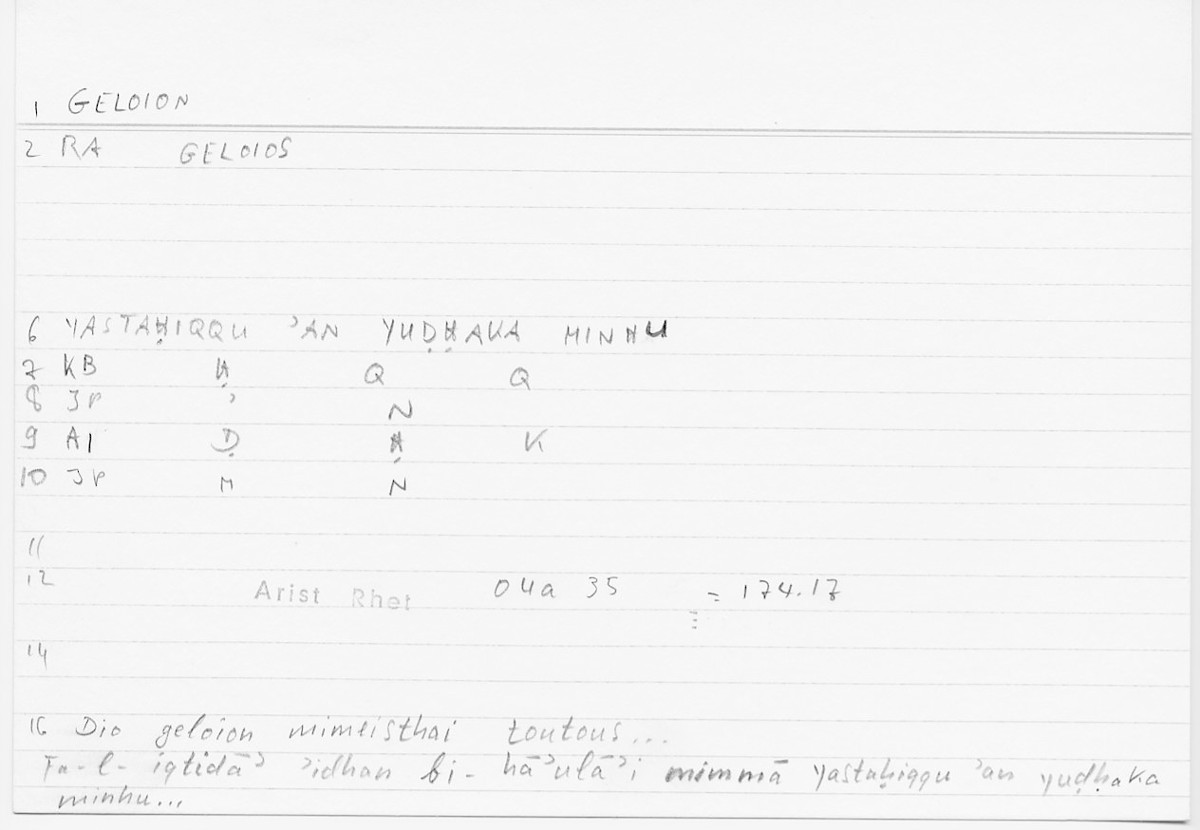 1 GELOION
2 RA GELOIOS
6 YASTAḤIQQU ʾAN YUḌḤAKA MINHU
7 KB Ḥ Q Q
8 JP ʾ N
9 A1 Ḍ Ḥ K
10 JP M N
11
12 Arist Rhet 04a 35 = 174.17
14
16 Dio geloion mimeisthai toutous...
Fa-l-iqtidāʾ ʾidhan bi-hāʾulāʾi mimmā yastaḥiqqu ʾan yuḍḥaka
minhu...